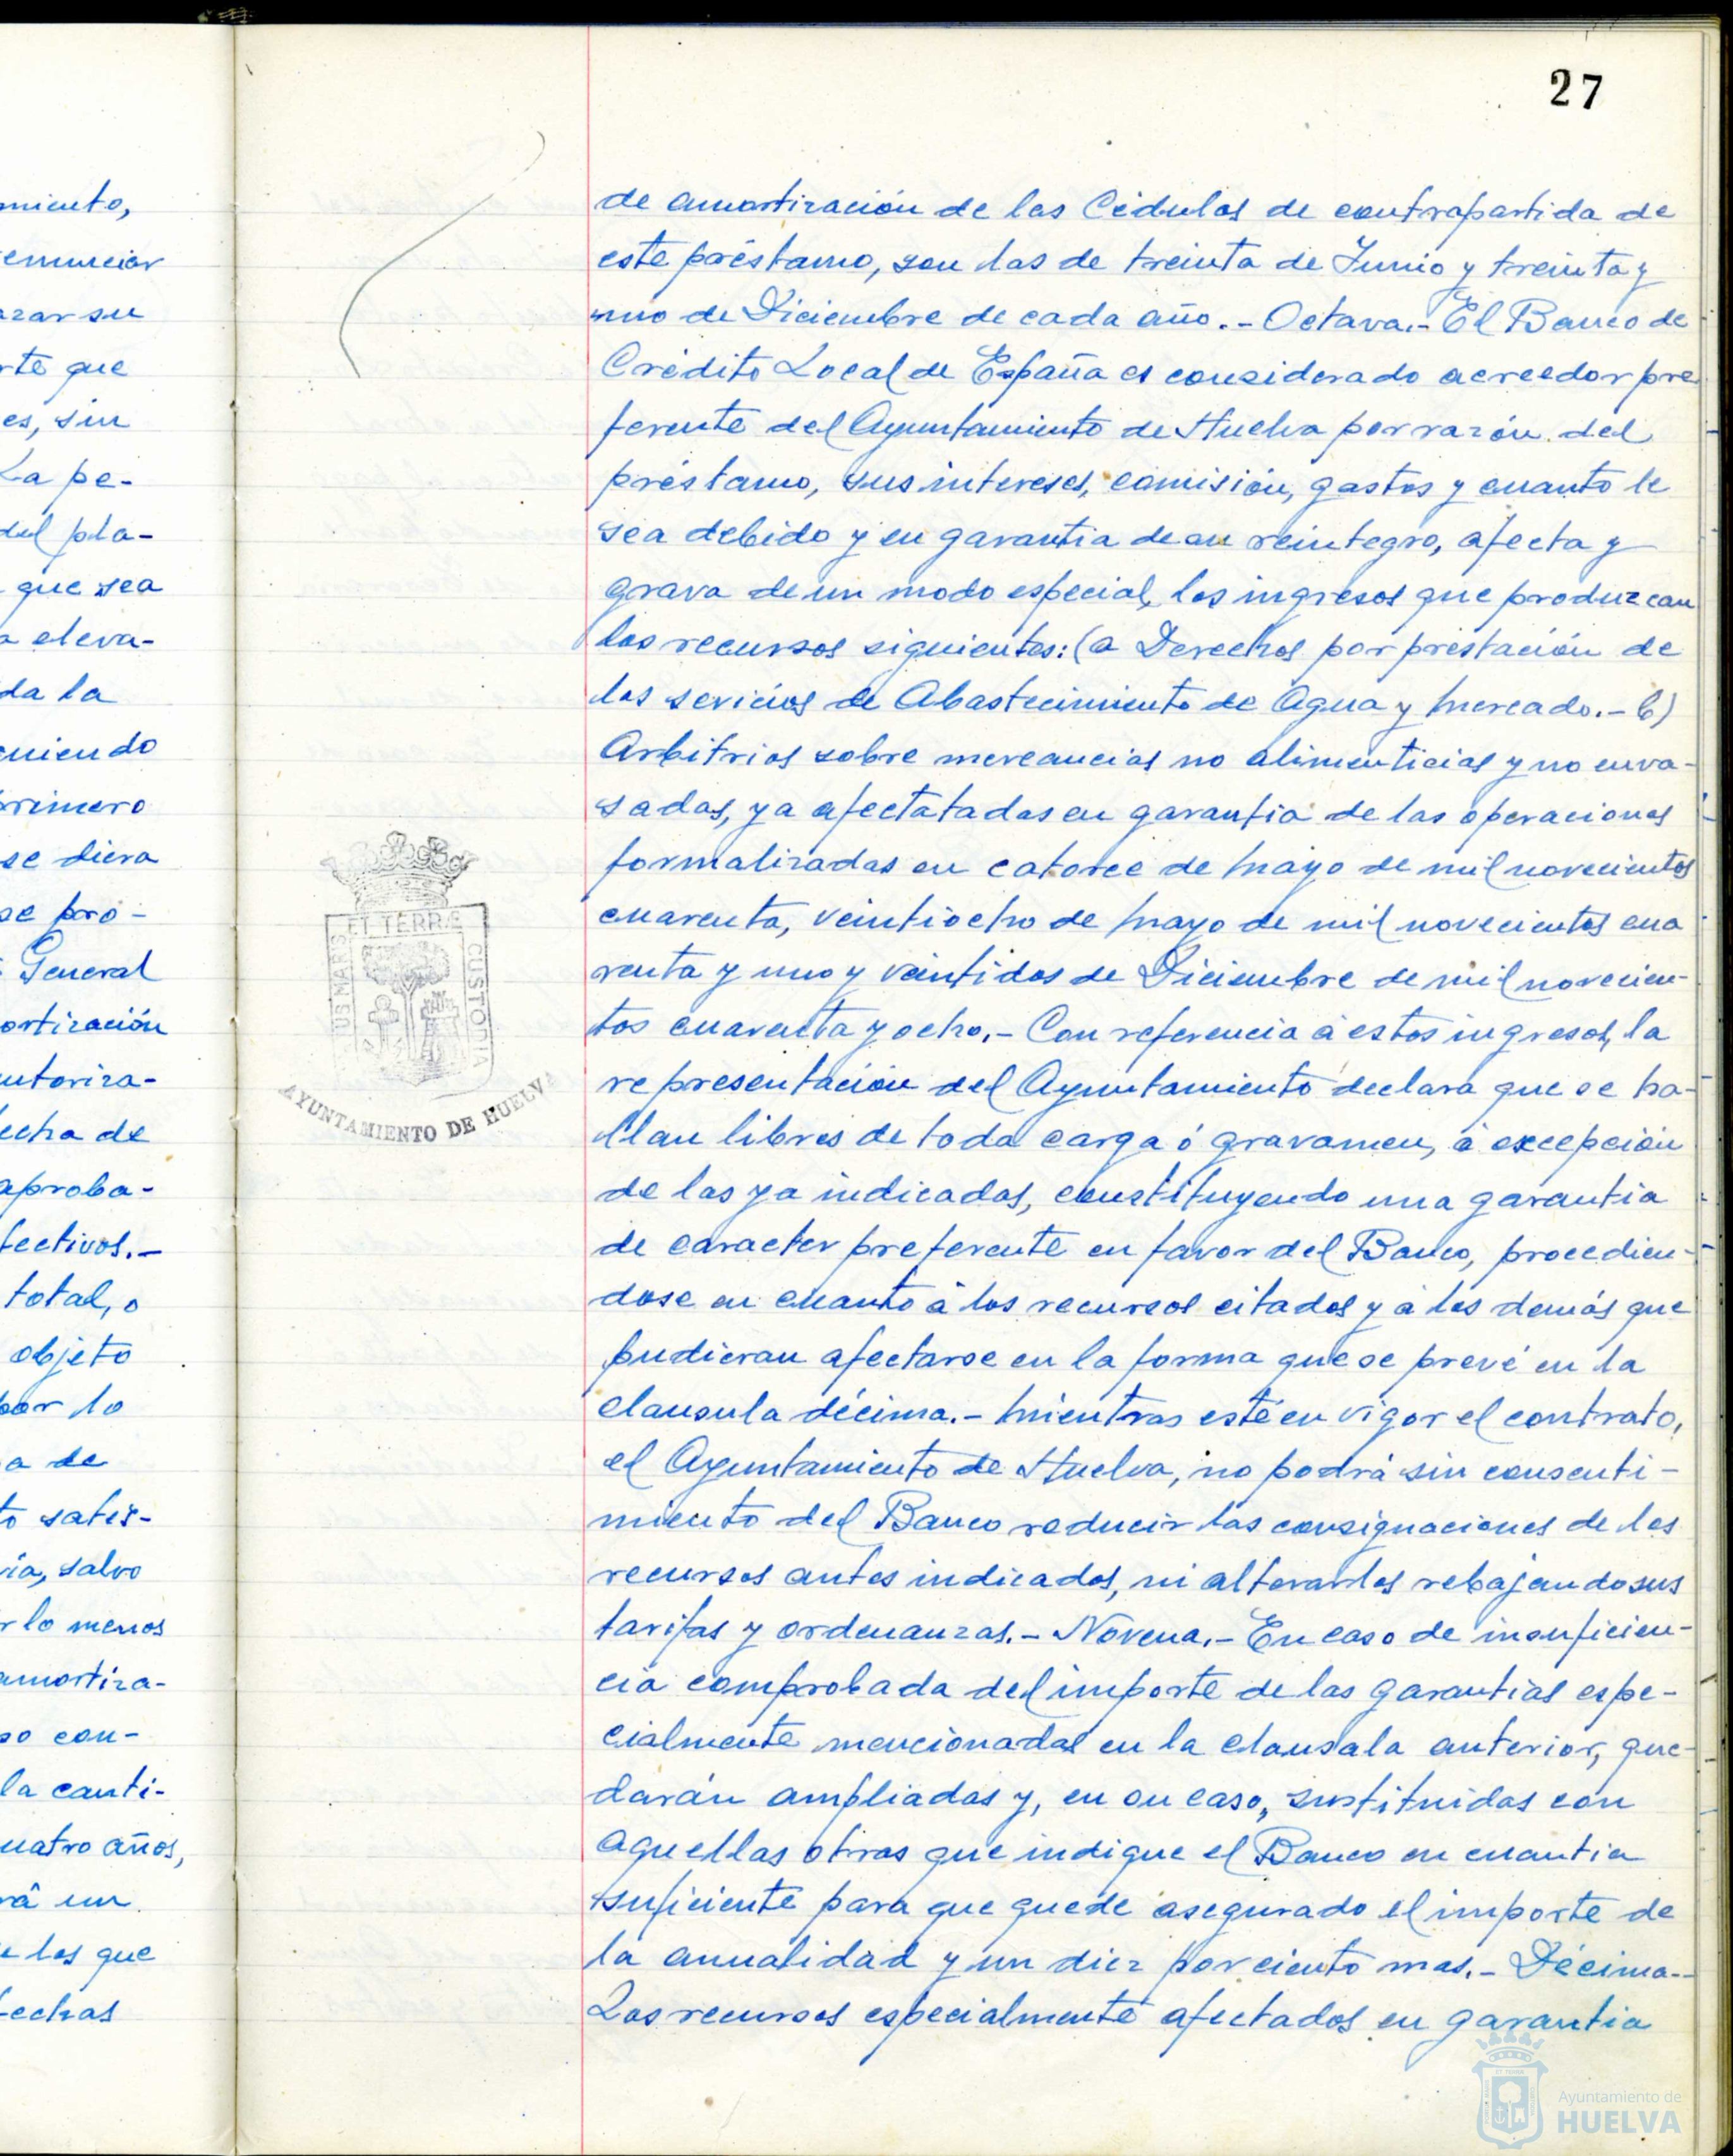 27
miento,
enunciar
azar su
rte que
es, sin
La pe-
del pla-
que sea
a eleva-
da la
eniendo
primero
se diera
se pro-
General
ortización
utoriza-
echa de
aproba-
fectivos.-
total, o
objeto
por lo
a de
to satis-
ría, salvo
r lo menos
amortiza-
so con-
la canti-
uatro años,
rá un
e los que
fechas
de amortización de las Cédulas de contrapartida de
este préstamo, son las de treinta de Junio y treinta y
uno de Diciembre de cada año.- Octava.- El Banco de
Crédito Local de España es considerado acreedor pre
ferente del Ayuntamiento de Huelva por razón del
préstamo, sus intereses, comisión, gastos y cuanto le
sea debido y en garantia de su reintegro, afecta y
grava de un modo especial, los ingresos que produzcan
los recursos siguientes: (a Derechos por prestación de
los sevicios de Abastecimiento de Agua y Mercado.- b)
Arbitrios sobre mercancias no alimenticias y no enva-
sadas, ya afectatadas en garantia de las operaciones
formalizadas en catorce de Mayo de mil novecientos
cuarenta, veintiocho de Mayo de mil novecientos cua
renta y uno y veintidos de Diciembre de mil novecien-
tos cuarenta y ocho.- Con referencia á estos ingresos, la
representación del Ayuntamiento declara que se ha-
llan libres de toda carga ó gravamen, á excepción
de las ya indicadas, constituyendo una garantia
de caracter preferente en favor del Banco, procedien-
dose en cuanto á los recursos citados y á los demás que
pudieran afectarse en la forma que se prevé en la
clausula décima.- Mientras esté en vigor el contrato,
el Ayuntamiento de Huelva, no podrá sin consenti-
miento del Banco reducir las consignaciones de los
recursos antes indicados, ni alterarlos rebajando sus
tarifas y ordenanzas.- Novena.- En caso de insuficien-
cia comprobada del importe de las garantias espe-
cialmente mencionadas en la clausala anterior, que-
darán ampliadas y, en su caso, sustituidas con
aquellas otras que indique el Banco en cuantia
suficiente para que quede asegurado el importe de
la anualidad y un diez por ciento mas.- Décima.-
Los recursos especialmente afectados en garantia
US MARIS ET TERRÆ CUSTODIA
AYUNTAMIENTO DE HUELVA
Ayuntamiento de
HUELVA